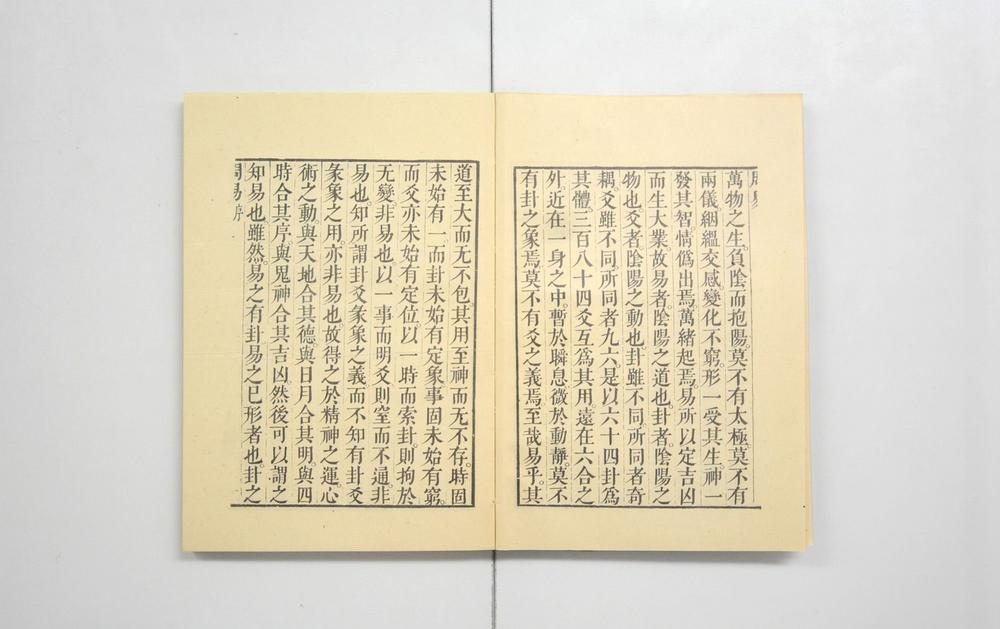 周易
萬物之生負陰而抱陽莫不有太極莫不有
兩儀絪縕交感變化不窮形一受其生神一
發其智情僞出焉萬緒起焉易所以定吉凶
而生大業故易者陰陽之道也卦者陰陽之
物也爻者陰陽之動也卦雖不同所同者奇
耦爻雖不同所同者九六是以六十四卦爲
其體三百八十四爻互爲其用遠在六合之
外近在一身之中暫於瞬息微於動靜莫不
有卦之象焉莫不有爻之義焉至哉易乎其
道至大而无不包其用至神而无不存時固
未始有一而卦未始有定象事固未始有窮
而爻亦未始有定位以一時而索卦則拘於
无變非易也以一事而明爻則窒而不通非
易也知所謂卦爻彖象之義而不知有卦爻
彖象之用亦非易也故得之於精神之運心
術之動與天地合其德與日月合其明與四
時合其序與鬼神合其吉凶然後可以謂之
知易也雖然易之有卦易之已形者也卦之
周易序